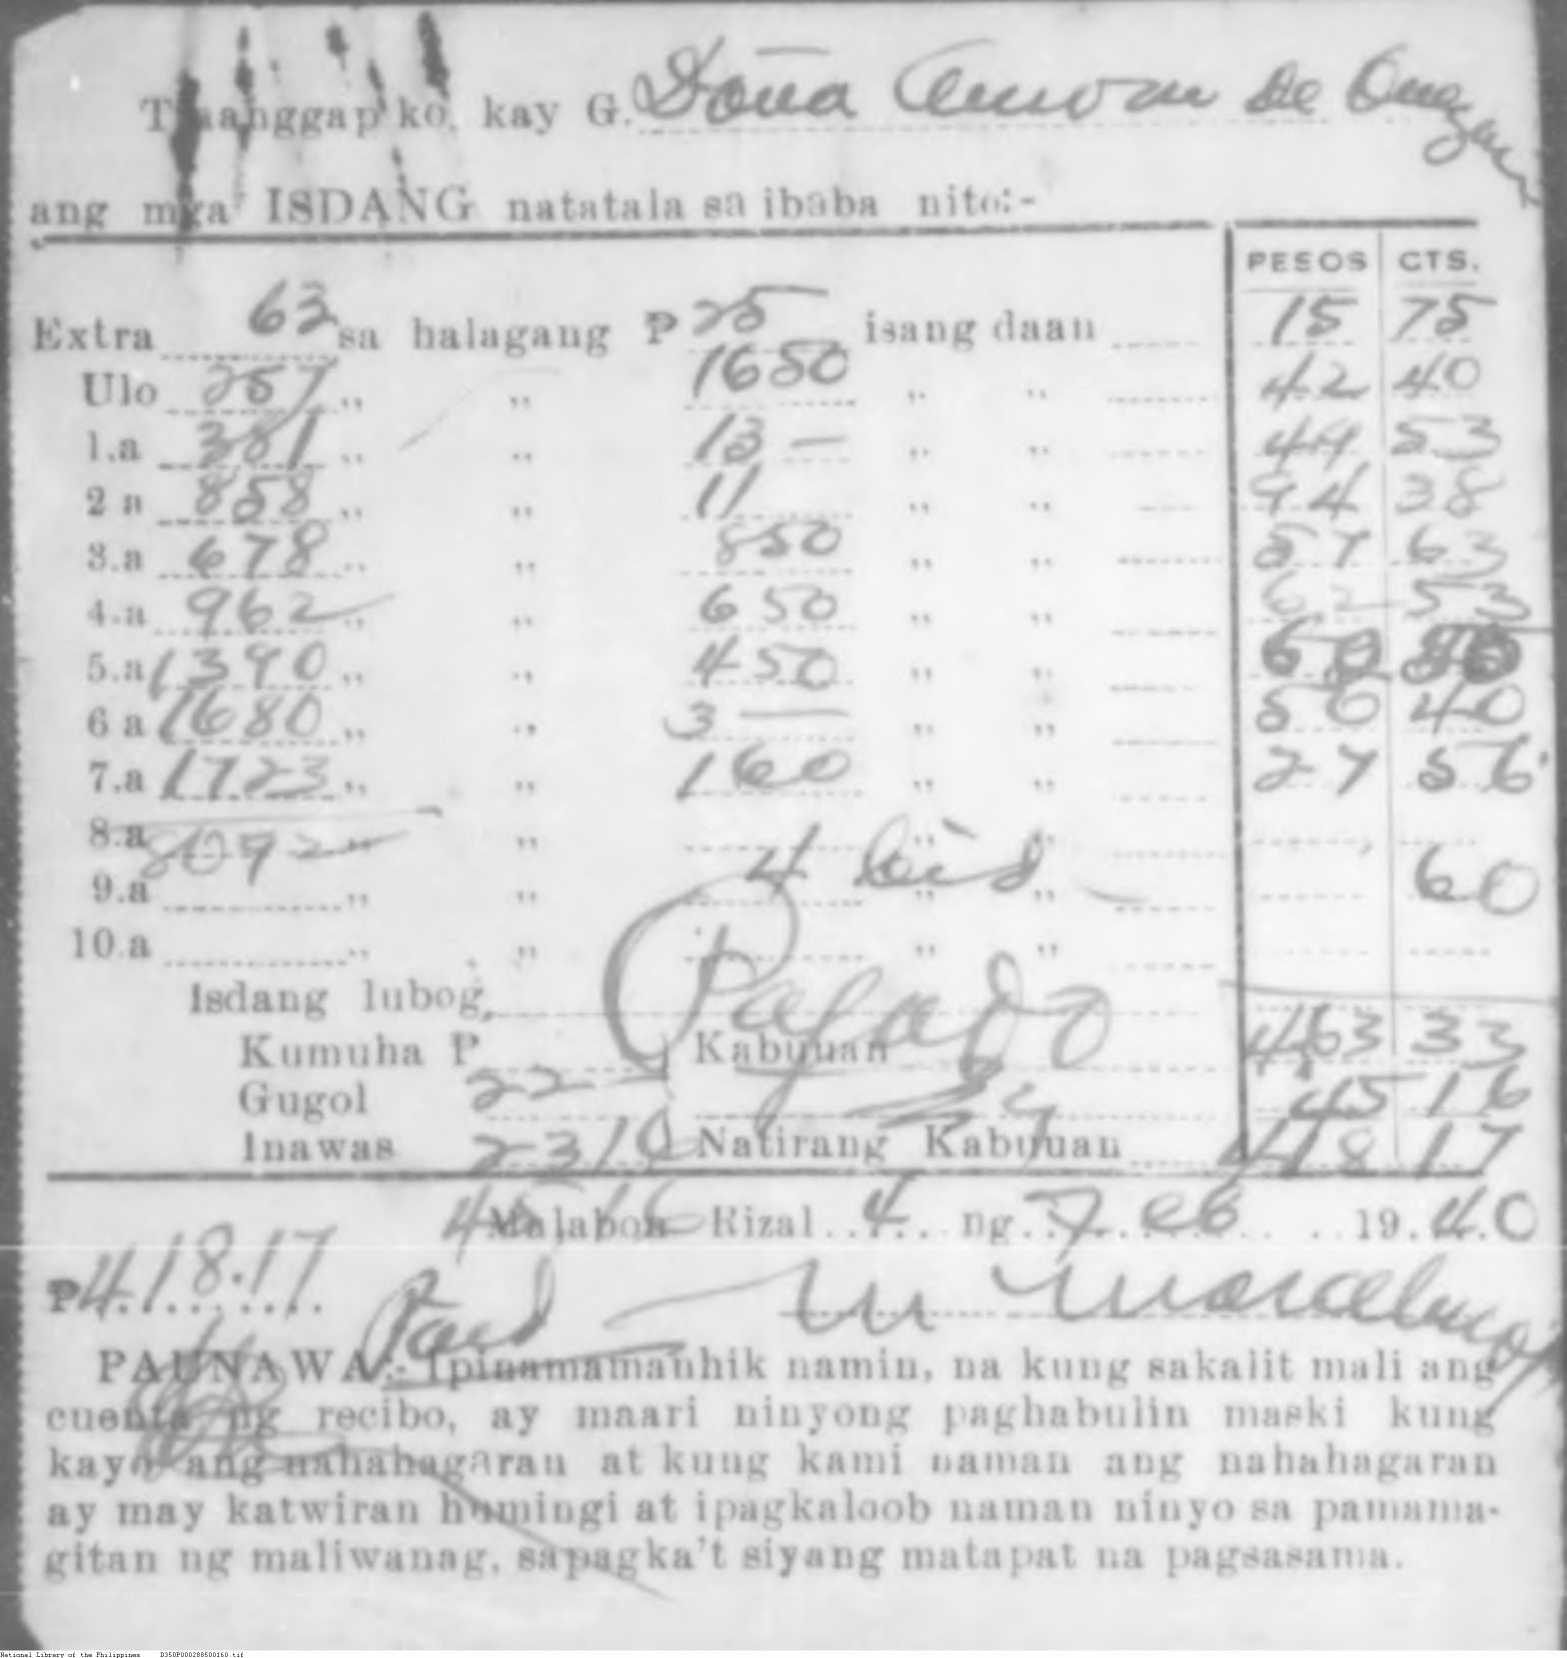 Tinanggap ko, kay G. Doña de
ang mga ISDANG natatala sa ibaba nito:-
PESOS CTS.
Extra 63 sa halagang ₱ 25 isang daan 15 75
Ulo 257 ,, ,, 1650 ,, ,, 42 40
1.a 381 ,, ,, 13 — ,, ,, 49 53
2 a 858 ,, ,, 11 ,, ,, 94 38
3.a 678 ,, ,, 850 ,, ,, 57 63
4.a 962 ,, ,, 650 ,, ,, 62 53
5.a 1390 ,, ,, 450 ,, ,,
6 a 1680 ,, ,, 3 — ,, ,, 50 40
7.a 1723 ,, ,, 160 ,, ,, 27 56
8.a 8092 ,, ,, ,, ,,
9.a ,, ,, 4 ,, ,, 60
10.a ,, ,, ,, ,,
Isdang lubog, Pagado
Kumuha P Kabuuan 463 33
Gugol 22 — 45 16
Inawas 23 16 Natirang Kabuuan 418 17
45 16
Malabon Rizal 4 ng Feb 19 40
₱ 418.17 Paid M Marcelino
PAUNAWA:- Ipinamamanhik namin, na kung sakalit mali ang
cuenta ng recibo, ay maari ninyong paghabulin maski kung
kayo ang nahahagaran at kung kami naman ang nahahagaran
ay may katwiran humingi at ipagkaloob naman ninyo sa pamama-
gitan ng maliwanag, sapagka't siyang matapat na pagsasama.
National Library of the Philippines D350P000288500160.tif